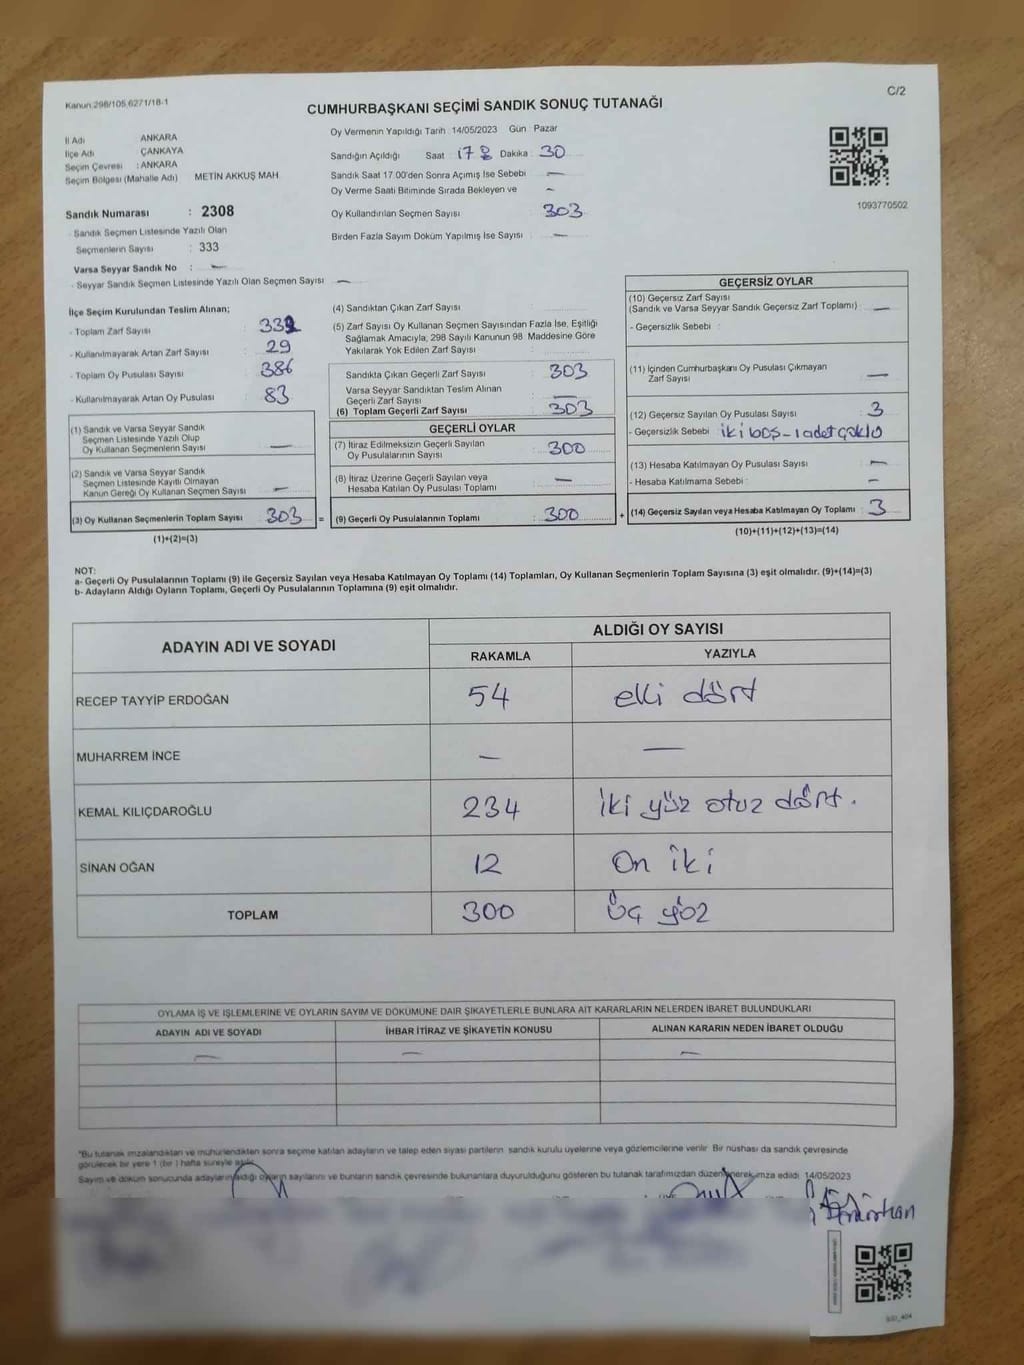 Kanun 298/105,6271/18-1
C/2
CUMHURBAŞKANI SEÇİMİ SANDIK SONUÇ TUTANAĞI
İl Adı ANKARA
İlçe Adı ÇANKAYA
Seçim Çevresi : ANKARA
Seçim Bölgesi (Mahalle Adı) METİN AKKUŞ MAH
Sandık Numarası : 2308
- Sandık Seçmen Listesinde Yazılı Olan
Seçmenlerin Sayısı : 333
Varsa Seyyar Sandık No : —
- Seyyar Sandık Seçmen Listesinde Yazılı Olan Seçmen Sayısı —
Oy Vermenin Yapıldığı Tarih 14/05/2023 Gün Pazar
Sandığın Açıldığı Saat : 17 Dakika : 30
Sandık Saat 17.00'den Sonra Açımış İse Sebebi —
Oy Verme Saati Bitiminde Sırada Bekleyen ve -
Oy Kullandırılan Seçmen Sayısı 303
Birden Fazla Sayım Döküm Yapılmış İse Sayısı : —
1093770502
İlçe Seçim Kurulundan Teslim Alınan;
- Toplam Zarf Sayısı
- Kullanılmayarak Artan Zarf Sayısı : 29
- Toplam Oy Pusulası Sayısı : 386
- Kullanılmayarak Artan Oy Pusulası : 83
(1) Sandık ve Varsa Seyyar Sandık
Seçmen Listesinde Yazılı Olup
Oy Kullanan Seçmenlerin Sayısı —
(2) Sandık ve Varsa Seyyar Sandık
Seçmen Listesinde Kayıtlı Olmayan
Kanun Gereği Oy Kullanan Seçmen Sayısı —
(3) Oy Kullanan Seçmenlerin Toplam Sayısı 303 =
(1)+(2)=(3)
(4) Sandıktan Çıkan Zarf Sayısı :
(5) Zarf Sayısı Oy Kullanan Seçmen Sayısından Fazla İse, Eşitliği
Sağlamak Amacıyla, 298 Sayılı Kanunun 98. Maddesine Göre
Yakılarak Yok Edilen Zarf Sayısı :
Sandıkta Çıkan Geçerli Zarf Sayısı : 303
Varsa Seyyar Sandıktan Teslim Alınan
Geçerli Zarf Sayısı : —
(6) Toplam Geçerli Zarf Sayısı : 303
GEÇERLİ OYLAR
(7) İtiraz Edilmeksizin Geçerli Sayılan
Oy Pusulalarının Sayısı : 300
(8) İtiraz Üzerine Geçerli Sayılan veya
Hesaba Katılan Oy Pusulası Toplamı : —
(9) Geçerli Oy Pusulalarının Toplamı : 300 +
GEÇERSİZ OYLAR
(10) Geçersiz Zarf Sayısı
(Sandık ve Varsa Seyyar Sandık Geçersiz Zarf Toplamı) : —
- Geçersizlik Sebebi :
(11) İçinden Cumhurbaşkanı Oy Pusulası Çıkmayan
Zarf Sayısı : —
(12) Geçersiz Sayılan Oy Pusulası Sayısı : 3
- Geçersizlik Sebebi : iki boş - 1 adet çoklo
(13) Hesaba Katılmayan Oy Pusulası Sayısı : —
- Hesaba Katılmama Sebebi : -
(14) Geçersiz Sayılan veya Hesaba Katılmayan Oy Toplamı : 3
(10)+(11)+(12)+(13)=(14)
NOT:
a- Geçerli Oy Pusulalarının Toplamı (9) ile Geçersiz Sayılan veya Hesaba Katılmayan Oy Toplamı (14) Toplamları, Oy Kullanan Seçmenlerin Toplam Sayısına (3) eşit olmalıdır. (9)+(14)=(3)
b- Adayların Aldığı Oyların Toplamı, Geçerli Oy Pusulalarının Toplamına (9) eşit olmalıdır.
ADAYIN ADI VE SOYADI ALDIĞI OY SAYISI
RAKAMLA YAZIYLA
RECEP TAYYİP ERDOĞAN 54 elli dört
MUHARREM İNCE — —
KEMAL KILIÇDAROĞLU 234 iki yüz otuz dört.
SİNAN OĞAN 12 On iki
TOPLAM 300 Üç yüz
OYLAMA İŞ VE İŞLEMLERİNE VE OYLARIN SAYIM VE DÖKÜMÜNE DAİR ŞİKAYETLERLE BUNLARA AİT KARARLARIN NELERDEN İBARET BULUNDUKLARI
ADAYIN ADI VE SOYADI İHBAR İTİRAZ VE ŞİKAYETİN KONUSU ALINAN KARARIN NEDEN İBARET OLDUĞU
— — —
*Bu tutanak imzalandıktan ve mühürlendikten sonra seçime katılan adayların ve talep eden siyasi partilerin sandık kurulu üyelerine veya gözlemcilerine verilir. Bir nüshası da sandık çevresinde
görülecek bir yere 1 (bir) hafta süreyle asılır.
Sayım ve döküm sonucunda adayların aldığı oyların sayılarını ve bunların sandık çevresinde bulunanlara duyurulduğunu gösteren bu tutanak tarafımızdan düzenlenerek imza edildi. 14/05/2023